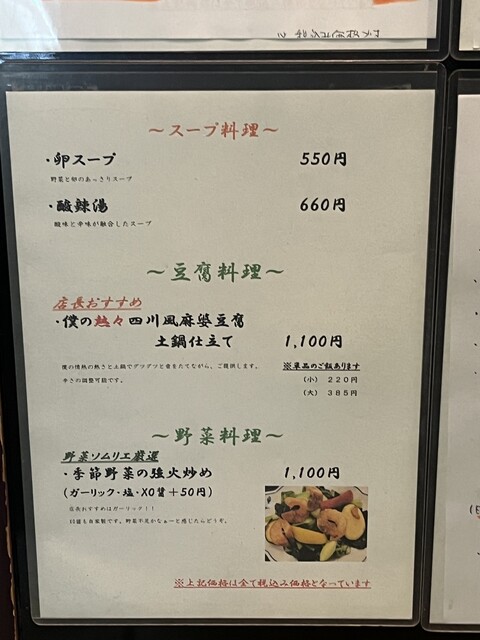 ～スープ料理～
・卵スープ 550円
野菜と卵のあっさりスープ
・酸辣湯 660円
酸味と辛味が融合したスープ
～豆腐料理～
店長おすすめ
・僕の熱々四川風麻婆豆腐
土鍋仕立て 1,100円
僕の情熱の熱さと土鍋でグツグツと音をたてながら、ご提供します。
辛さの調整可能です。
※単品のご飯あります
（小） 220円
（大） 385円
～野菜料理～
野菜ソムリエ厳選
・季節野菜の強火炒め 1,100円
(ガーリック・塩・XO醤＋50円)
おすすめはガーリック！！
野菜不足かなぁーと感じたらどうぞ。
※上記価格は全て税込み価格となっています